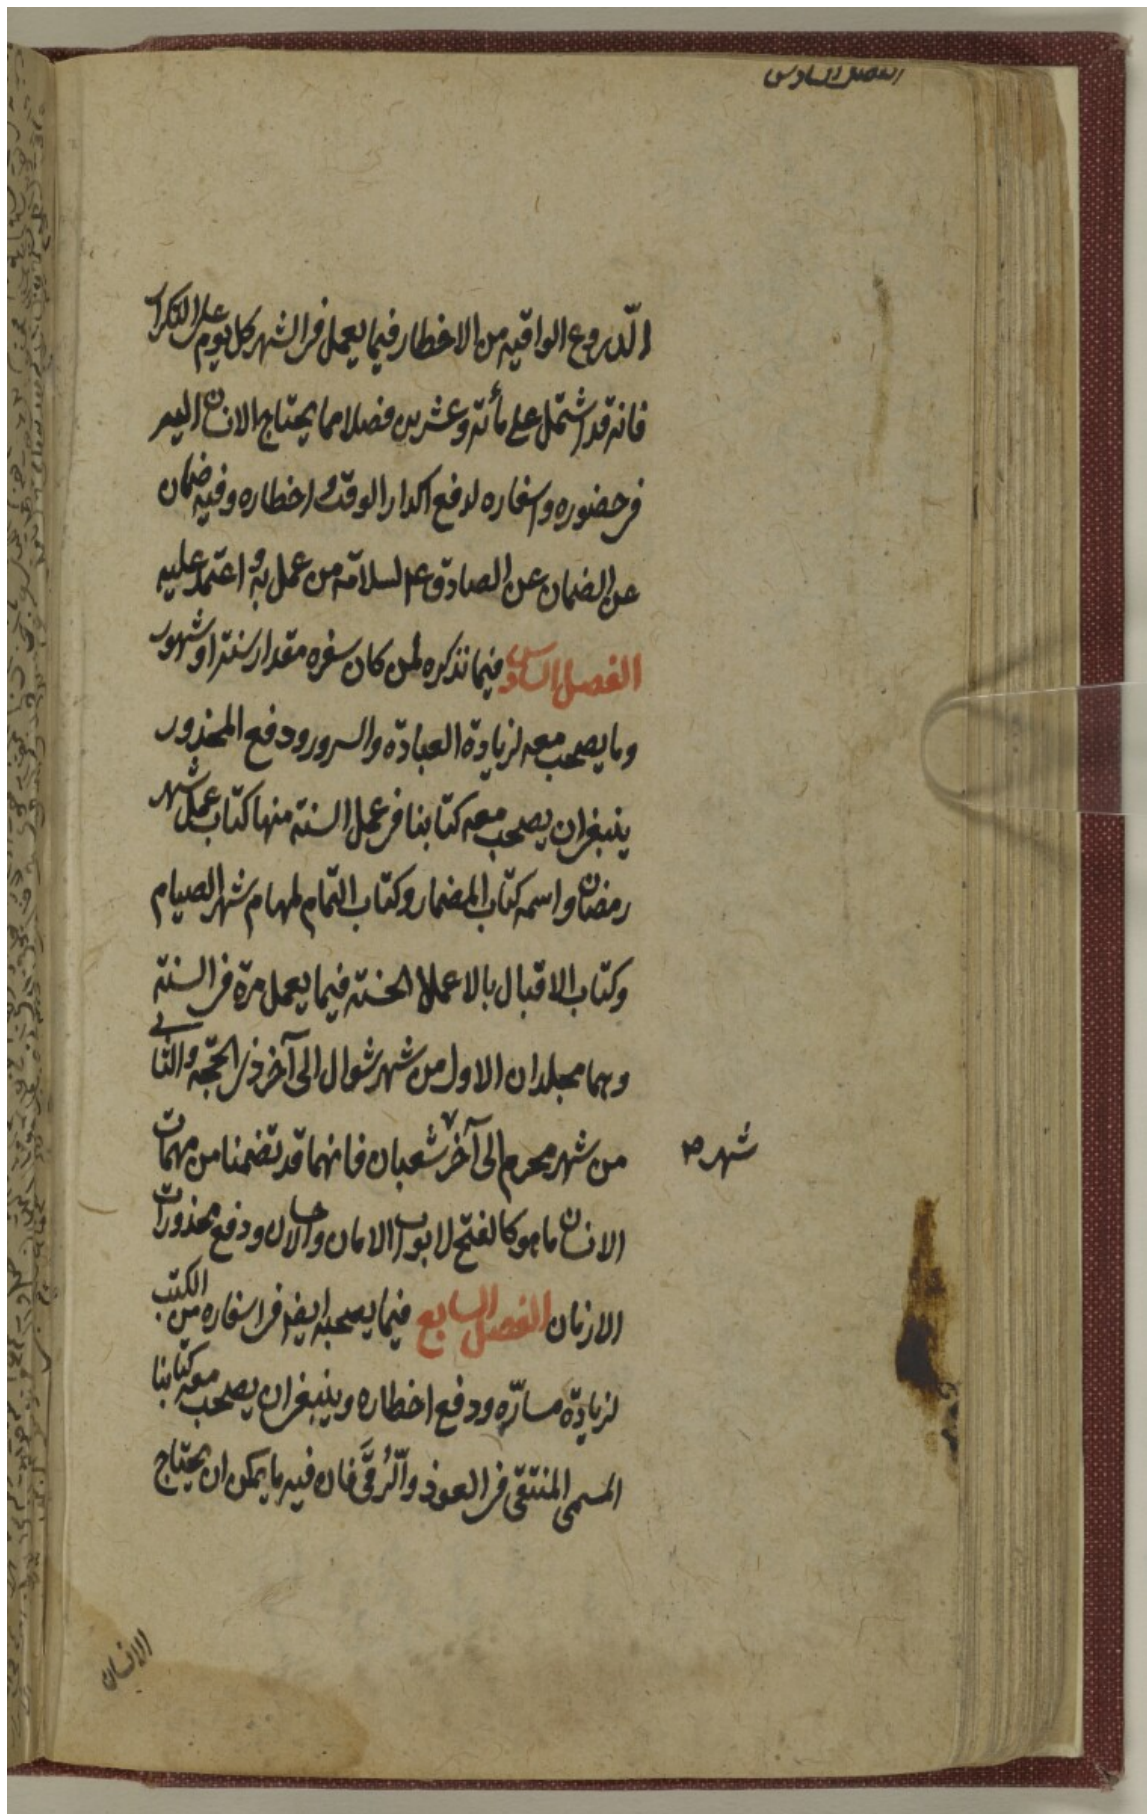 الفصل السادس
الدّروع الواقيه من الاخطار فيما يعمل فى الشهر كل يوم على التكرار
فانه قد اشتمل على مأته وعشرين فصلا مما يحتاج الانسان اليه
فى حضوره واسفاره لدفع اكدار الوقت واخطاره وفيه ضمان
عن الضمان عن الصادق ع لسلامة من عمل به واعتمد عليه
الفصل السادس فيما نذكره لمن كان سفره مقدار سنته او شهور
وما يصحب معه لزيادة العبادة والسرور ودفع المحذور
ينبغى ان يصحب معه كتابنا فى عمل السنة منها كتاب عمل شهر
رمضان واسمه كتاب المضمار وكتاب التمام لمهام شهر الصيام
وكتاب الاقبال بالاعمال الحسنة فيما يعمل مرة فى السنة
وهما مجلدان الاول من شهر شوال الى آخر ذى الحجّه والثانى
من شهر محرم الى آخر شعبان فانهما قد تضمنا من مهمات
شهر ص
الانسان ما هو كالفتح لابواب الامان والاحسان ودفع محذورات
الازمان الفصل السابع فيما يصحبه ايضا فى اسفاره من الكتب
لزيادة مسارّه ودفع اخطاره وينبغى ان يصحب معه كتابنا
المسمى المنتقى فى العوذ والرُّقَى فان فيه ما يمكن ان يحتاج
الانسان